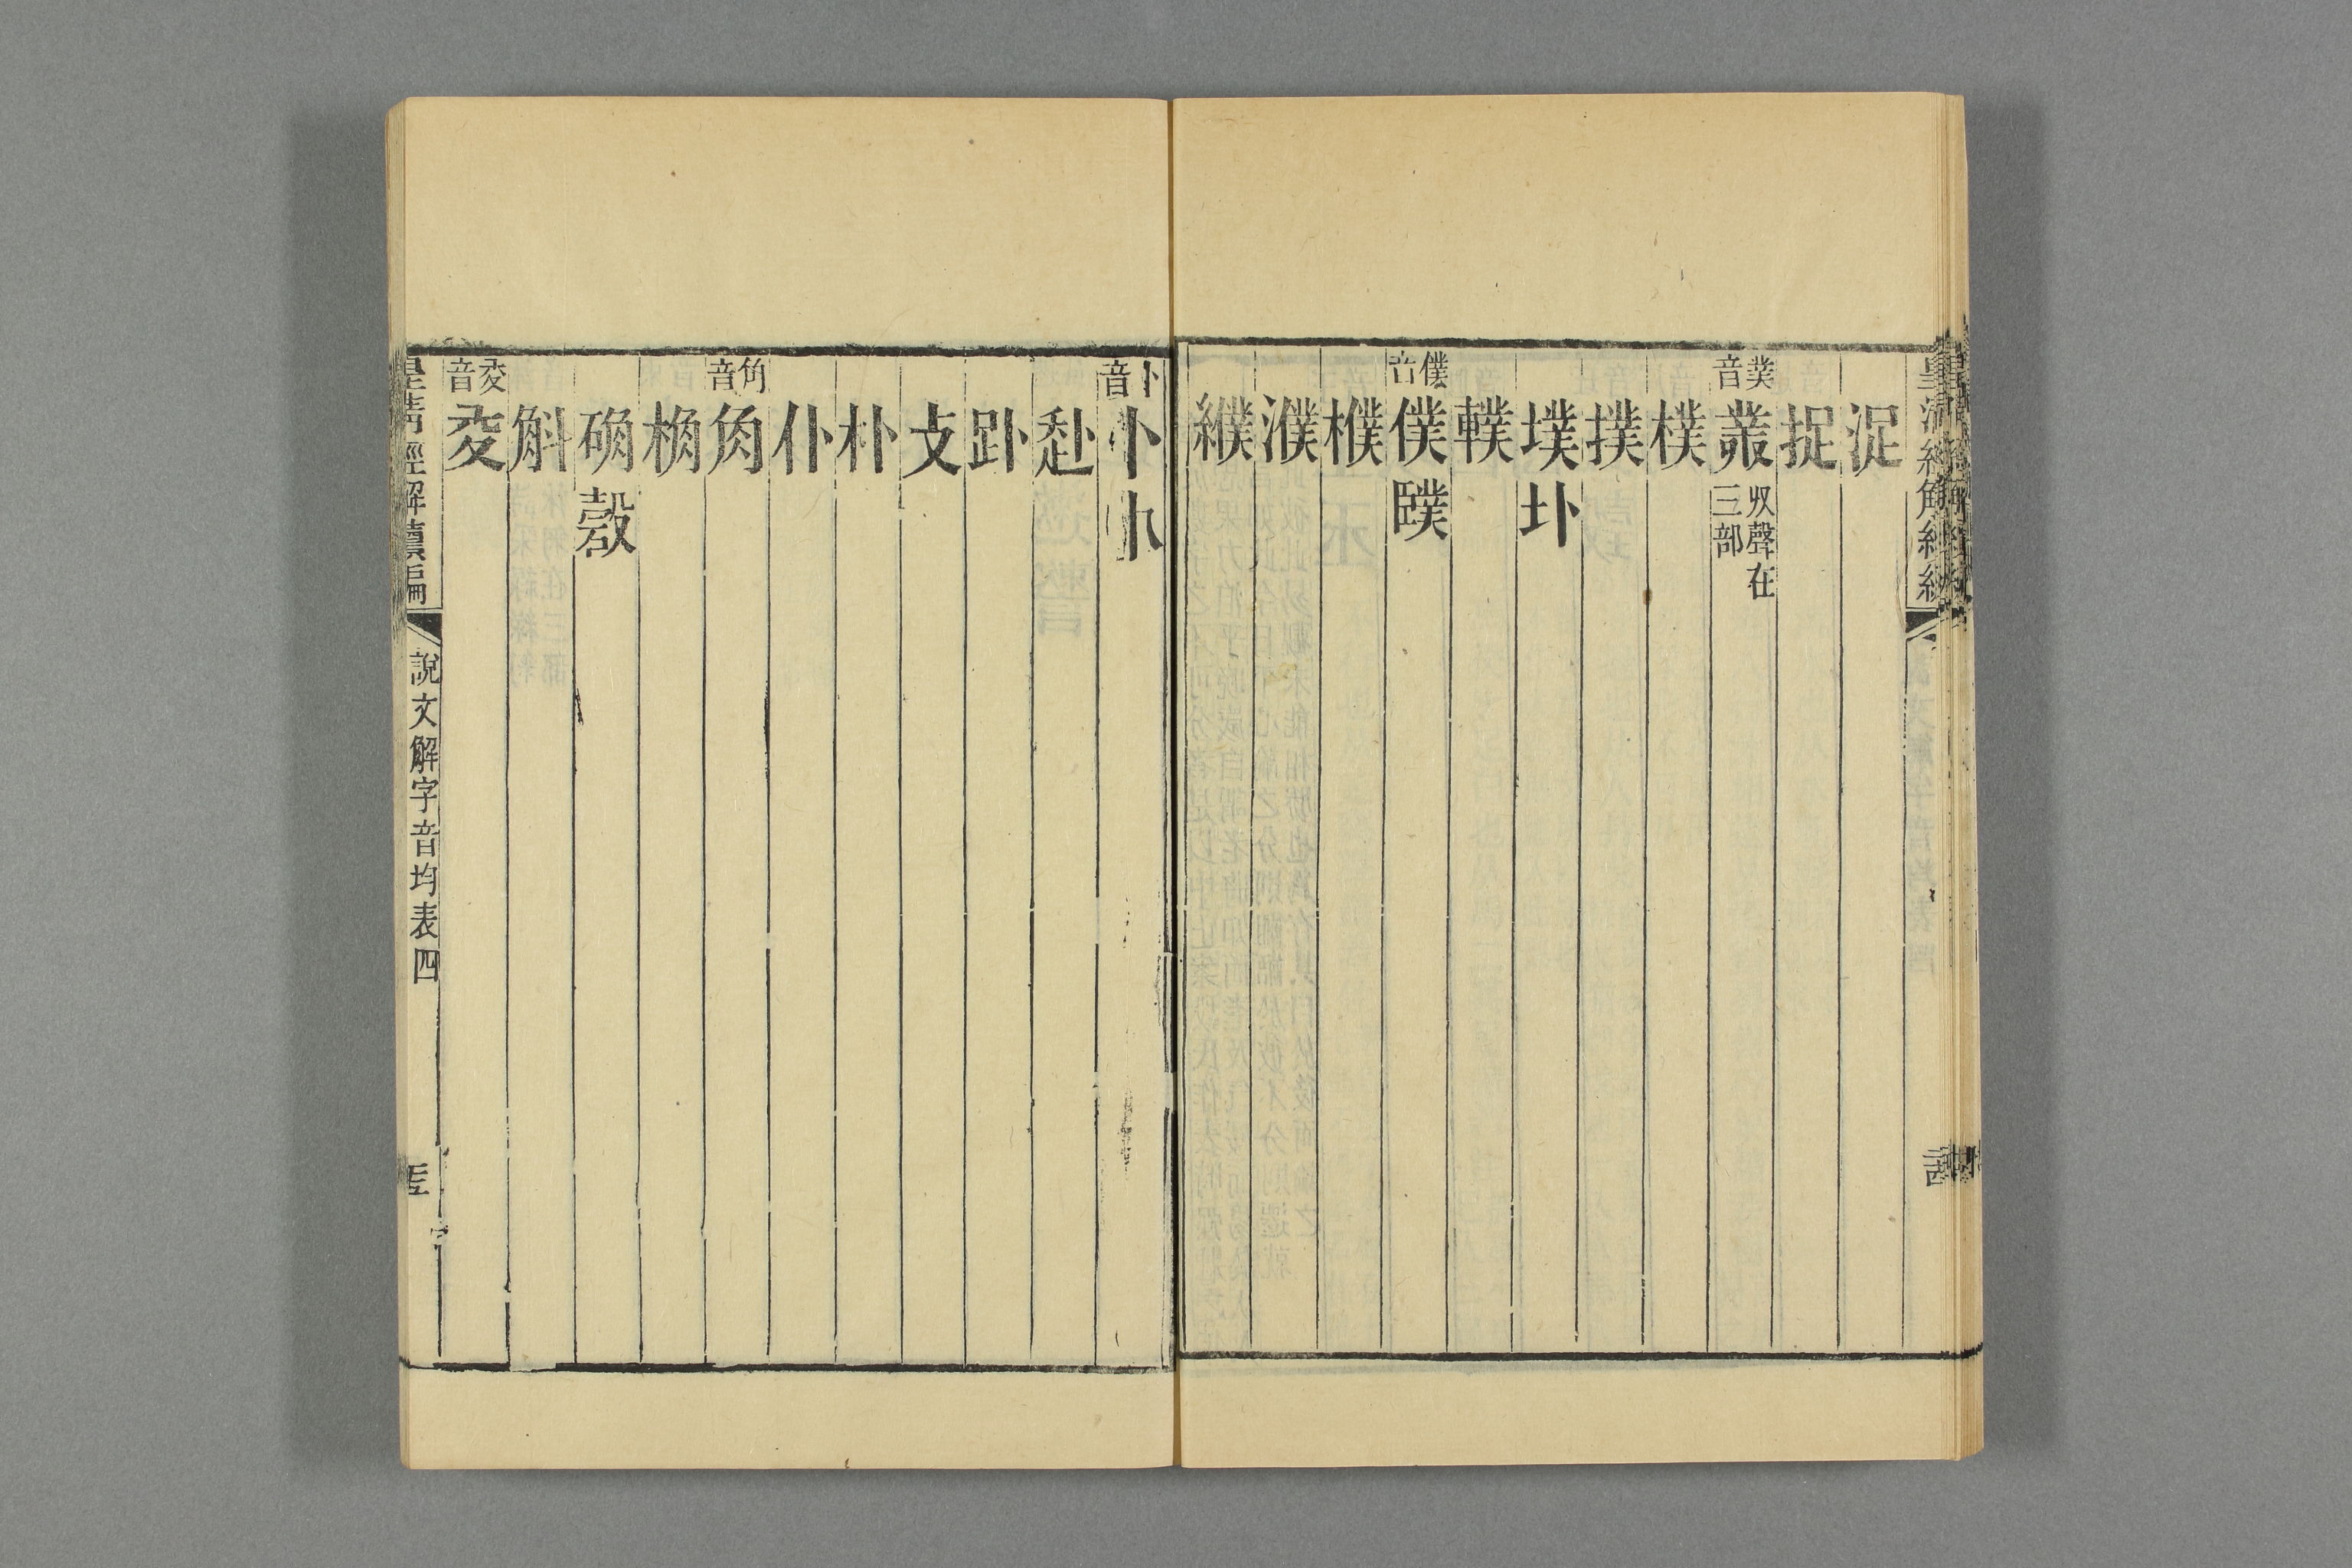 浞
捉
菐音 叢 収聲在三部
樸
撲
墣 圤
轐
僕音 僕 䑑
檏
濮
纀
卜音 卜 𠁡
赴
䟔
攴
朴
仆
角音 角
桷
确 㱿
斛
㱿音
皇清經解續編
說文解字音均表四